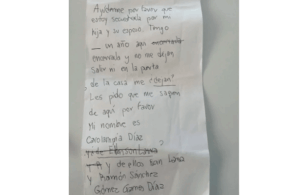 Ayúdenme por favor que
estoy secuestrada por mi
hija y su esposo. Tengo
un año aqui
encerrada y no me dejan
salir ni en la puerta
de la casa me dejan
Les pido que me saquen
de aqui por favor
Mi nombre es
Díaz
y de ellos son
y Ramón Sánchez
Gómez Díaz